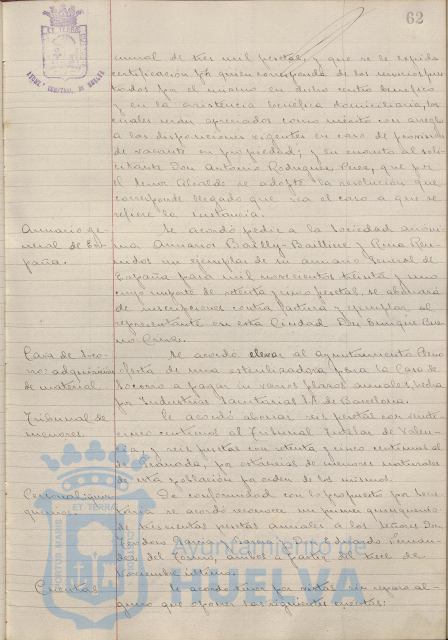 62
anual de tres mil pesetas, y que se le expida
certificación por quien corresponda de los servicios pres
tados por el mismo en dicho centro benéfico
y en la asistencia benéfica domiciliaria, los
cuales serán apreciados como mérito con arreglo
a las disposiciones vigentes en caso de provisión
de vacante en propiedad; y en cuanto al soli-
citante Don Antonio Rodríguez Pérez, que por
el Señor Alcalde se adopte la resolución que
corresponda llegado que sea el caso a que se
refiere la instancia.
Anuario ge-
neral de Es-
paña.
Se acordó pedir a la Sociedad anóni-
ma Anuarios Bailly-Bailliere y Riera Reu-
nidos un ejemplar de su anuario General de
España para mil novecientos treinta y uno
cuyo importe de setenta y cinco pesetas, se abonará
de suscripciones contra factura y ejemplar al
representante en esta Ciudad Don Enrique Bue
no Cruz.
Casa de Soco-
rro: adquisición
de material
Se acordó elevar al Ayuntamiento Pleno
oferta de una esterilizadora para la Casa de
Socorro a pagar en varios plazos anuales, hecha
por Industrias Sanitarias S.A. de Barcelona.
Tribunal de
menores.
Se acordó abonar seis pesetas con veinte
cinco centimos al Tribunal Tutelar de Valen-
cia, y seis pesetas con setenta y cinco centimos al
de Granada, por estancias de menores naturales
de esta población por orden de los mismos.
Personal: quin-
quenios.
De conformidad con lo propuesto por
se acordó reconocer un primer quinquenio
de trescientas pesetas anuales a los Señores Don
Teodoro García y García y Don Eduardo Fernán-
dez del Toro, ambos a partir del trece de
Noviembre último.
Cuentas
Se acordó tener por vistas sin reparo al-
guno que oponer las siguientes cuentas:
PORTUS MARIS
ET TERRAE
Ayuntamiento de
HUELVA